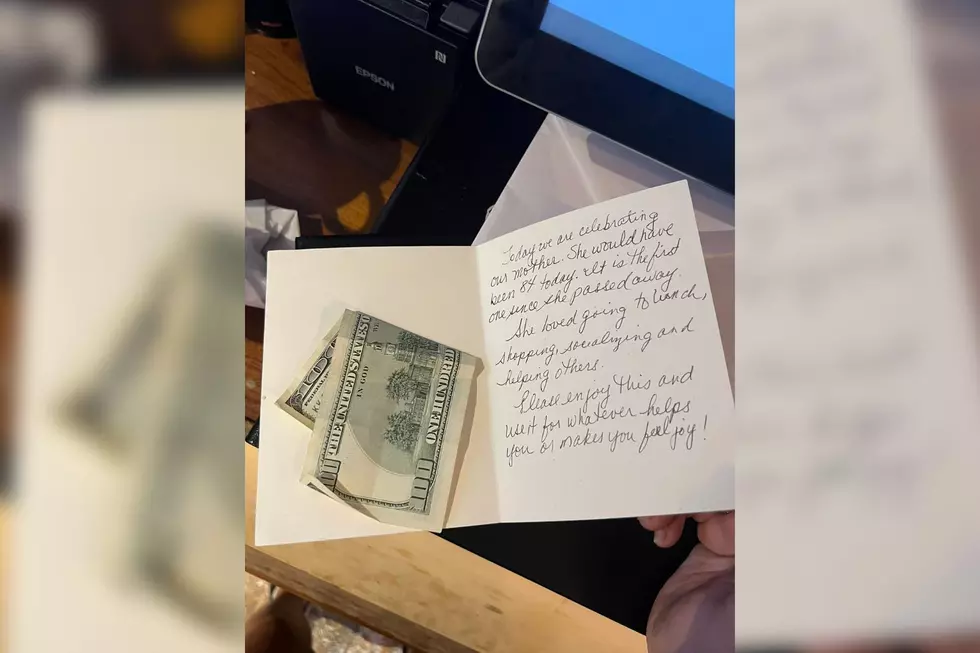 EPSON
N
Today we are celebrating
our mother. She would have
been 84 today. It is the first
one since she passed away.
She loved going to lunch,
shopping, socializing and
helping others.
Please enjoy this and
use it for whatever helps
you or makes you feel joy!
THE UNITED STATES
IN GOD
ONE HUNDRED
100